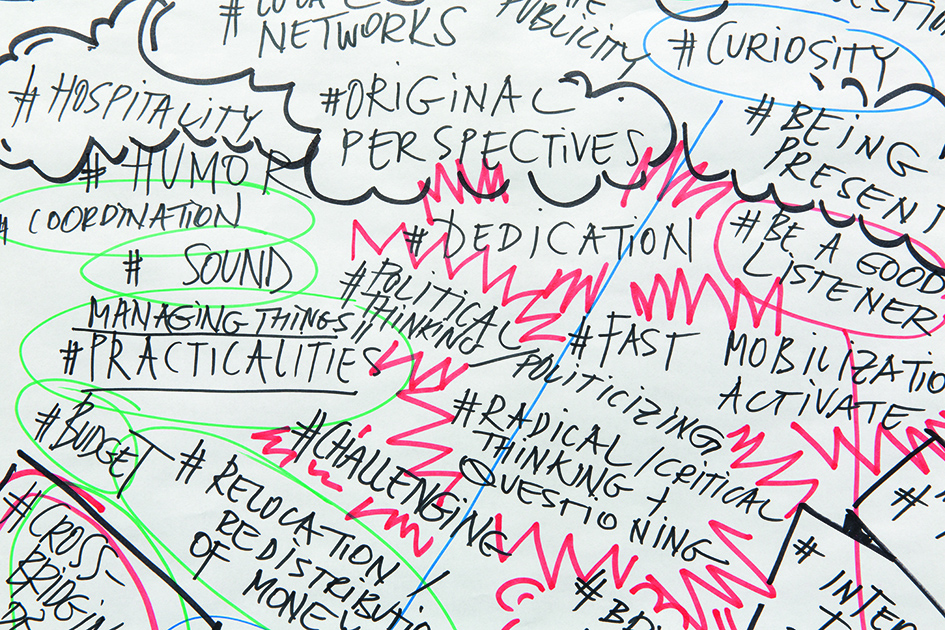 NETWORKS
PUBLICITY
# CURIOSITY
# HOSPITALITY
#ORIGINAL
PERSPECTIVES
# BEING
PRESENT
# HUMOR
# COORDINATION
# DEDICATION
#BE A GOOD
LISTENER
# SOUND
MANAGING THINGS
#PRACTICALITIES
#POLITICAL
THINKING
POLITICIZING
#FAST MOBILIZATIO
ACTIVATE
#BUDGET
#RADICAL/CRITICAL
THINKING +
QUESTIONING
#CHALLENGING
# RELOCATION /
REDISTRIBUTI
OF MONEY
#CROSS-
BRIDGIN
#
# INTE
#